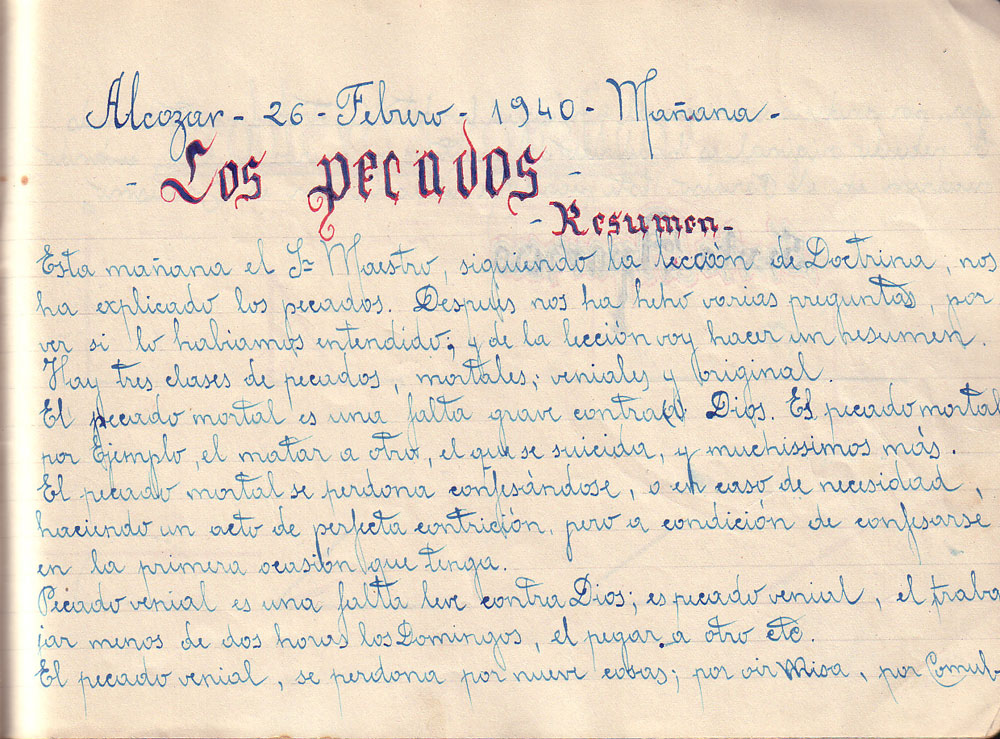 Alcozar - 26 - Febrero - 1940 - Mañana -
- Los pecados -
- Resumen -
Esta mañana el Sr Maestro, siguiendo la lección de Doctrina, nos
ha explicado los pecados. Despues nos ha heho varias preguntas, por
ver si lo habiamos entendido; y de la lección voy hacer un resumen.
Hay tres clases de pecados, mortales; veniales y original.
El pecado mortal es una falta grave contra(a) Dios. Es pecado mortal
por Ejemplo, el matar a otro, el que se suicida, y muchissimos más.
El pecado mortal se perdona confesándose, o en caso de necesidad,
haciendo un acto de perfecta contrición, pero a condición de confesarse
en la primera ocasión que tenga.
Pecado venial es una falta leve contra Dios; es pecado venial, el traba
jar menos de dos horas los Domingos, el pegar a otro etc.
El pecado venial, se perdona por nueve cosas; por oir Misa, por Comul-